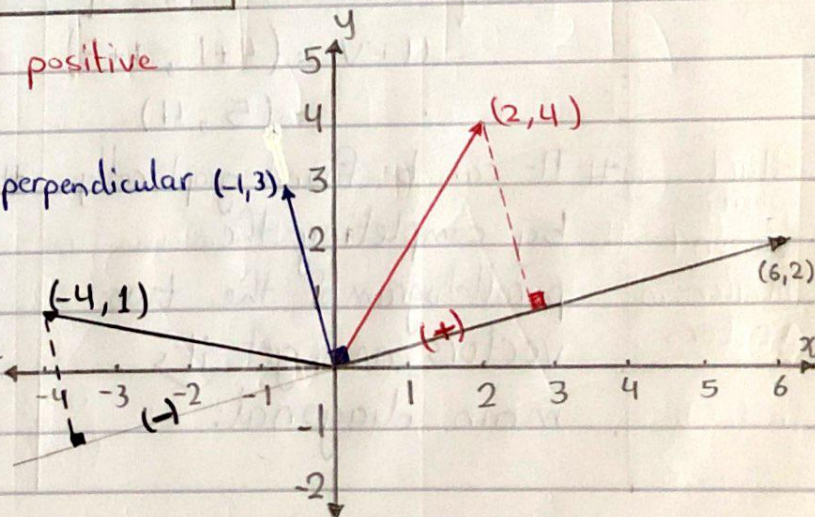 y
positive
5
4
(2,4)
perpendicular (-1,3)
3
2
(6,2)
(-4,1)
1
(+)
x
-4 -3 -2 -1 1 2 3 4 5 6
(-)
-1
-2